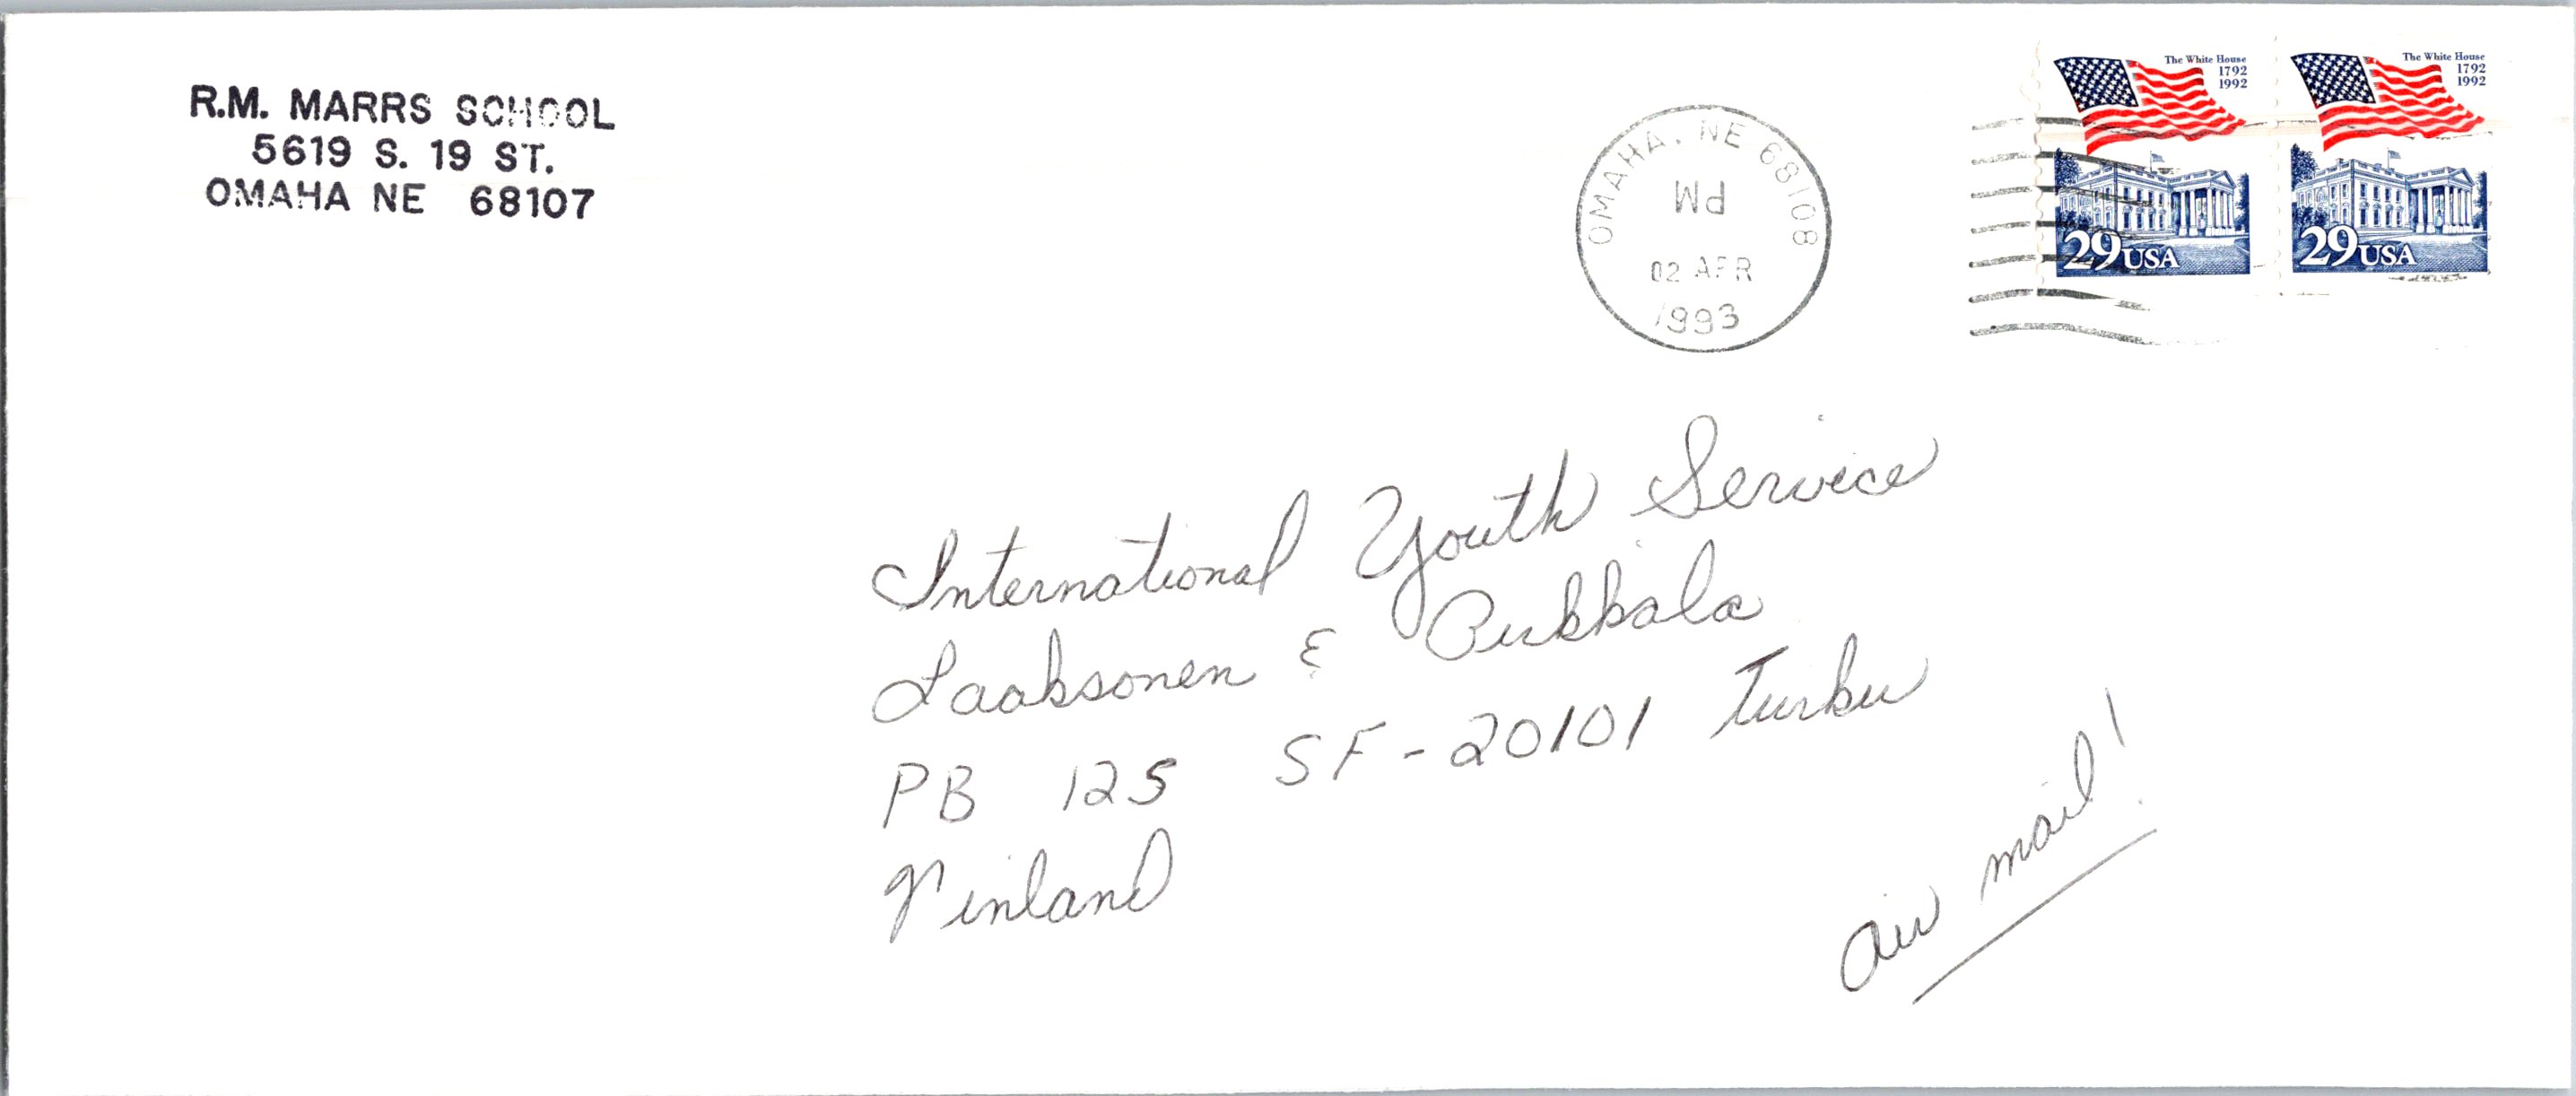 R.M. MARRS SCHOOL
5619 S. 19 ST.
OMAHA NE 68107
OMAHA, NE 68108
PM
02 APR
1993
The White House
1792
1992
29USA
The White House
1792
1992
29USA
International Youth Service
Laaksonen & Pirkkala
PB 125 SF-20101 Turku
Finland
air mail!